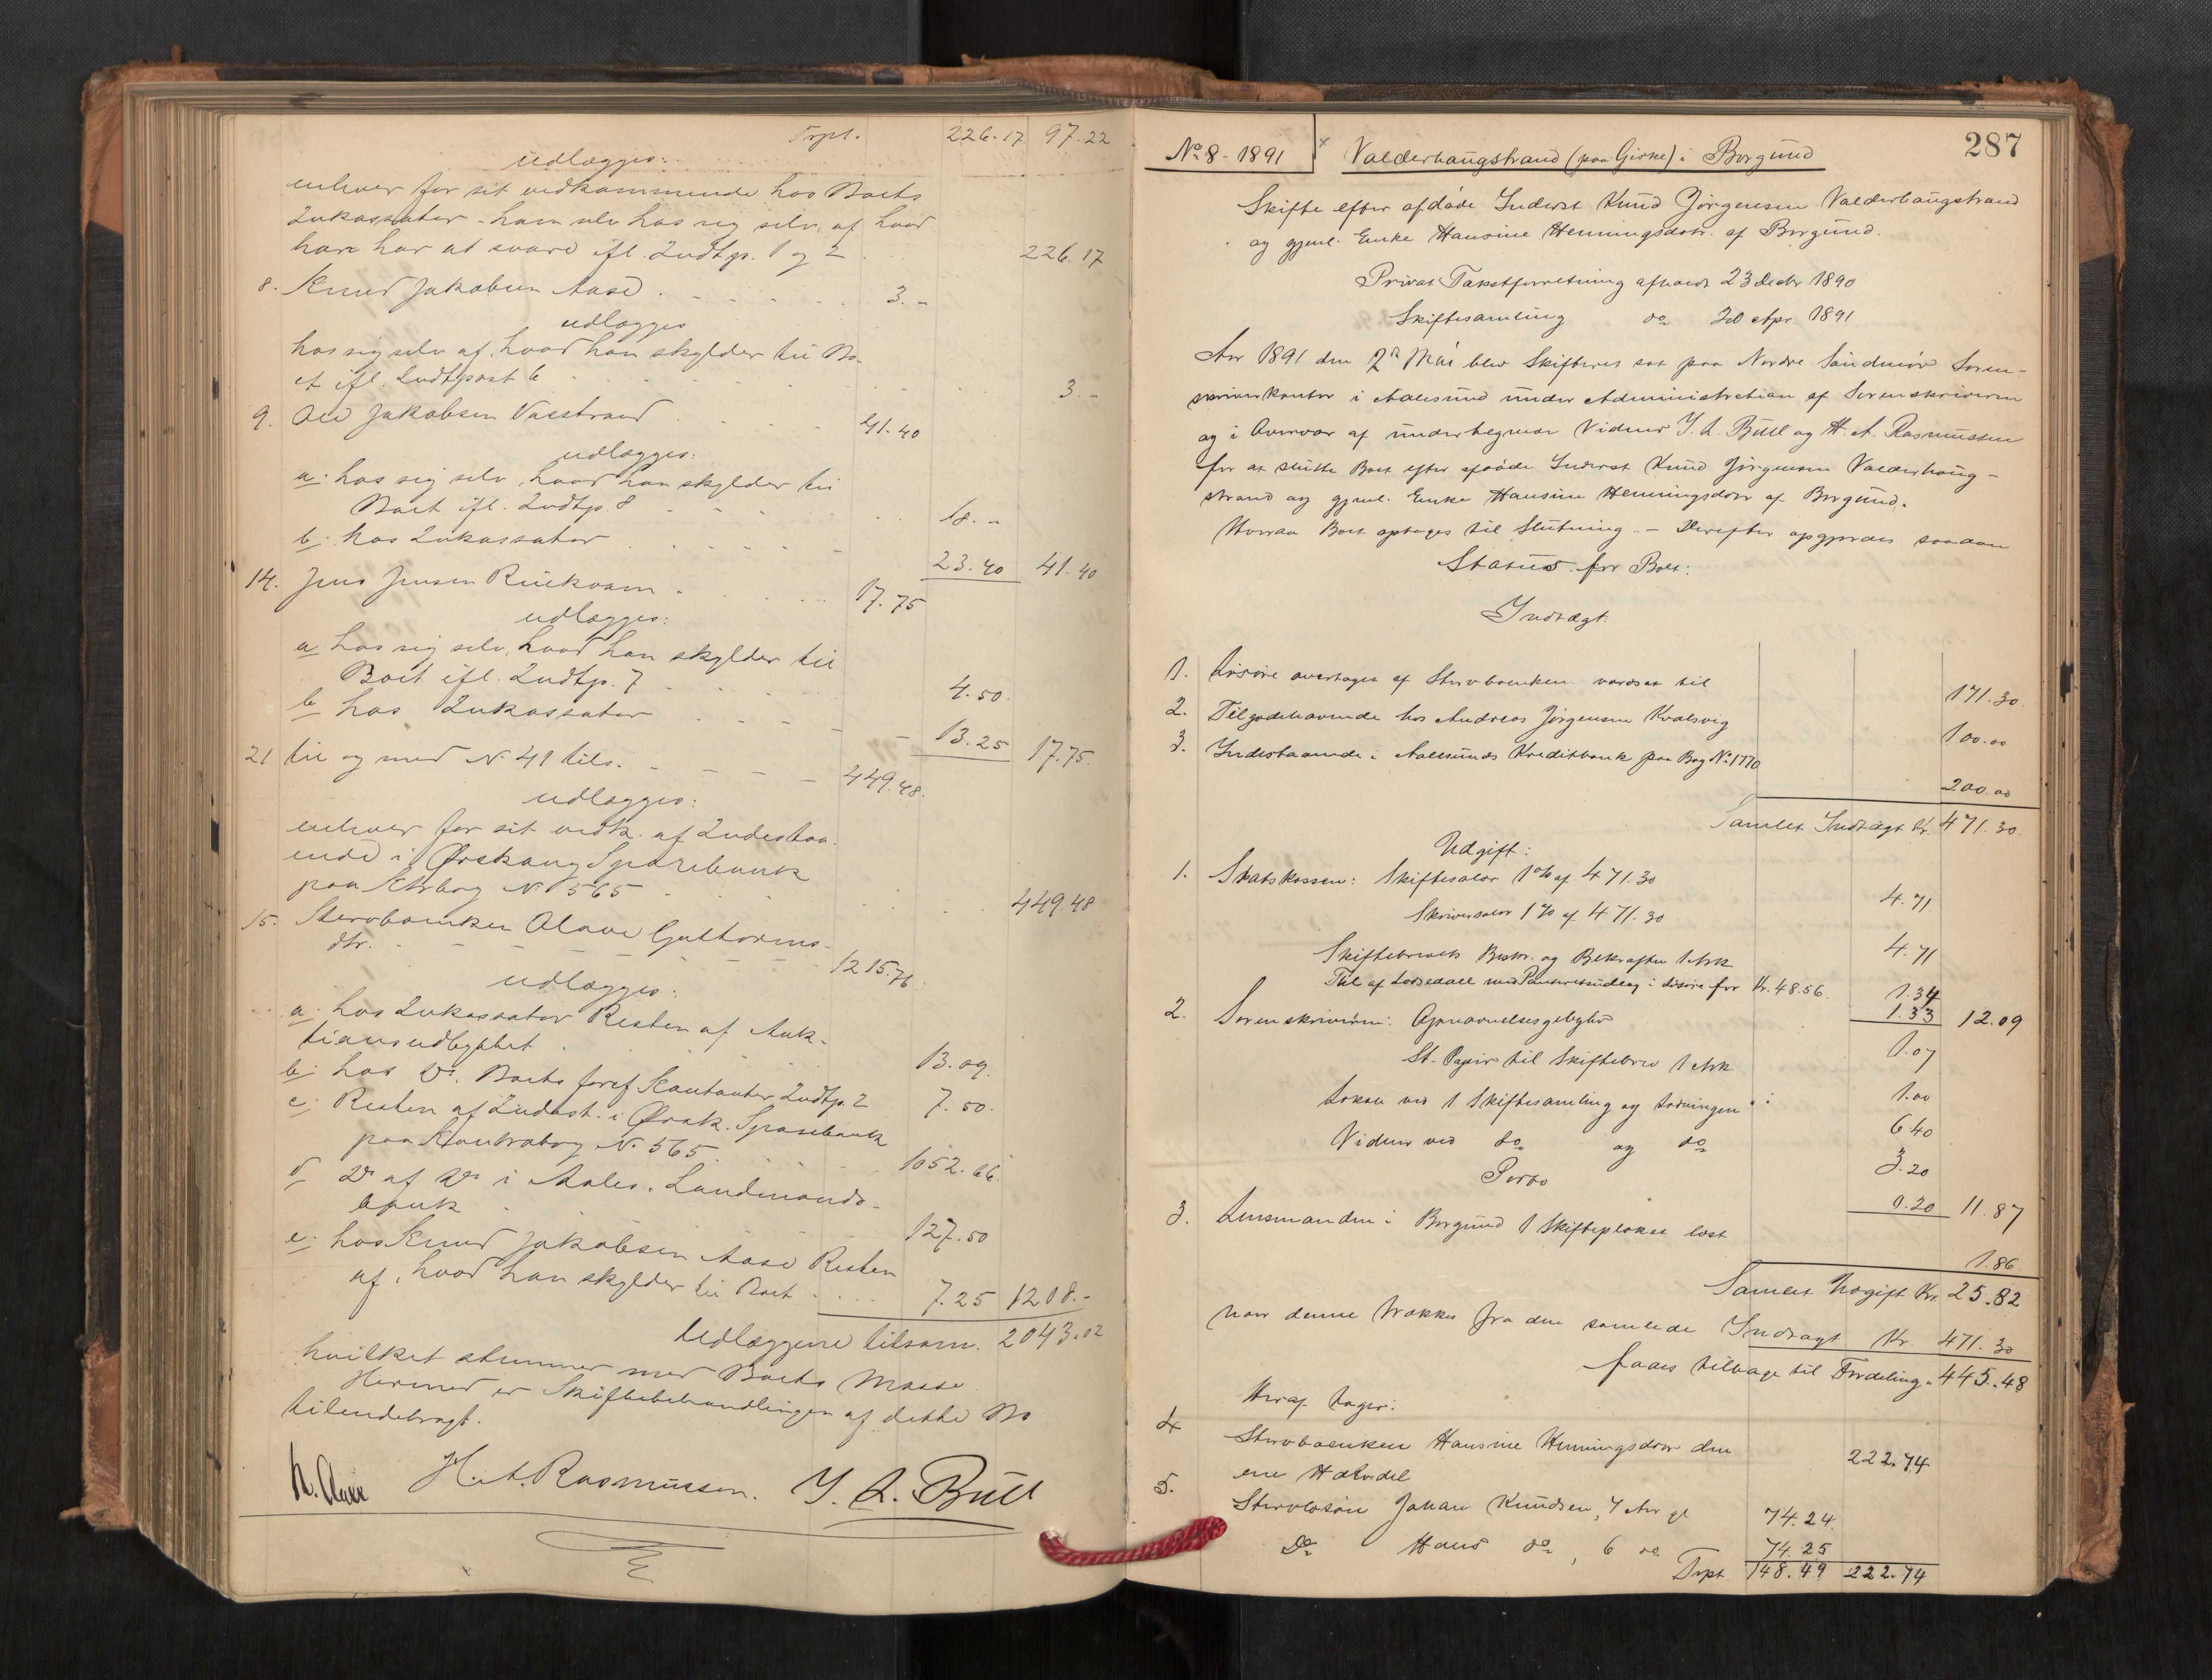 Trpt. 226.17 97.22
udlægges:
enhver for sit vedkommende hos Boets
Inkassator - ham selv hos sig selv, af hvad
han har at svare ifl. Indtp. 1 og 2 226.17
8. Knud Jakobsen Aase 3.-
udlægges
hos sig selv af, hvad han skylder til Bo-
et ifl. Indtpost 6 3.-
9. Ole Jakobsen Vasstrand 41.40
udlægges:
a. hos sig selv, hvad han skylder til
Boet ifl. Indtp. 8 18.-
b. hos Inkassator 23.40 41.40
14. Jens Jensen 17.75
udlægges:
a hos sig selv, hvad han skylder til
Boet ifl. Indtp. 7 4.50.
b hos Inkassator 13.25 17.75
21 til og med N. 41 tils. 449.48.
udlægges:
enhver for sit vedk. af Indestaa-
ende i Ørskoug Sparebank
paa Ktrbog N. 565 449.48
15. Stervboenken Olave Guttorms-
dtr. 1215.76
udlægges:
a. hos Inkassator Resten af Auk-
tionsudbyttet 13.09.
b. hos Do. Boets foref Kautanter Indtp. 2 7.50.
c. Resten af Indest. i Ørsk. Sparebank
paa Kontrabog N. 565 1052.66
d Do af Do i Aales. Landmands-
bank 127.50
e. hos Knud Jakobsen Aase Resten
af, hvad han skylder til Boet 7.25 1208.-
Udlæggene tilsam. 2043.02
hvilket stemmer med Boets Masse
Hermed er Skiftebehandlingen af dette Bo
tilendebragt.
H. A. Rasmussen. J. L. Bull
287
No 8 - 1891 Valderhaugstrand (paa Giske) i Borgund
Skifte efter afdøde Inderst Knud Jørgensen Valderhaugstrand
og gjenl. Enke Hansine Henningsdatr. af Borgund.
Privat Takstforretning afholdt 23 Decbr 1890
Skiftesamling do 20 Apr. 1891
Aar 1891 den 2den Mai blev Skifteret sat paa Nordre Søndmør Soren-
skriverkontor i Aalesund under Administration af Sorenskriveren
og i Overvær af undertegnede Vidner J. L. Bull og H. A. Rasmussen
for at slutte Boet efter afdøde Inderst Knud Jørgensen Valderhaug-
strand og gjenl. Enke Hansine Henningsdatr af Borgund.
Hvorda Boet optages til Slutning. - Derefter opgjordes saadan
Status for Boet:
Indtægt:
1. Løsøre overtaget af Stervboenken vurdert til 171.30.
2. Tilgodehavende hos Andreas Jørgensen Kvalsvig 100.00
3. Indestaaende i Aalesunds Kreditbank paa Bog No 1770 200.00
Samlet Indtægt Kr. 471.30.
Udgift:
1. Statskassen: Skifteafgift 1% af 471.30 4.71
Skriversalær 1% af 471.30 4.71
Skiftebrevets Beskr. og Bekræftn 1 Ark 1.34
Kr. 48.56. 1.33 12.09
2. Sorenskriveren: Opnævnelsesgebyhr 0.07
St. Papir til Skiftebrev 1 Ark 1.00
Lokale ved 1 Skiftesamling og Lodningen 6.40
Vidner ved do og do 3.20
Porto 0.20 11.87
3. Lensmanden i Borgund 1 Skifteplakat læst 1.86
Samlet Udgift Kr. 25.82
naar denne trækkes fra den samlede Indtægt Kr. 471.30
faaes tilbage til Fordeling " 445.48
Heraf tager:
4 Stervboenken Hansine Henningsdatr den
ene Halvdel 222.74
5. Stervbosøn Johan Knudsen, 7 Aar gl 74.24.
Do Hans do, 6 do 74.25
Trpt. 148.49 222.74